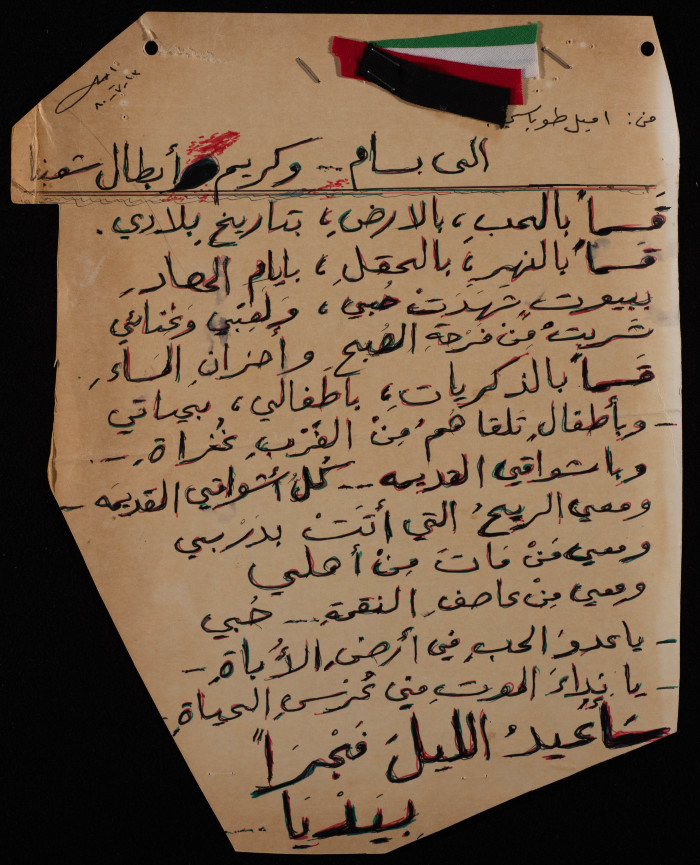 ٨٠-٧-١٢
من: اميل طوباسي
الى بسام -- وكريم أبطال شعبنا
قَسماً بالحب، بالارض، بتاريخ بلادي.
قسماً بالنهرِ، بالحقلِ، بايام الحصادِ
ببيوت شهدت حُبي، ولعبي وغنائي
شربت من فرحة الصبح وأحزان المساءِ
قسماً بالذكريات، باطفالي، بحياتي
- وبأطفالٍ تلقاهم من الغرب غزاة. -
وباشواقي القديمه -- كل أشواقي القديمه -
ومعي الريحُ التي أتَتْ بدربي
ومعي مَنْ مَاتَ مِنْ أهلي
ومعي مِنْ عاصف النقمةِ -- حُبي
- ياعدو الحب في أرض الأباة -
- يا نداء الموت في عُرس الحياة -
سأعيدُ الليلَ فَجْرَاً
بيديا